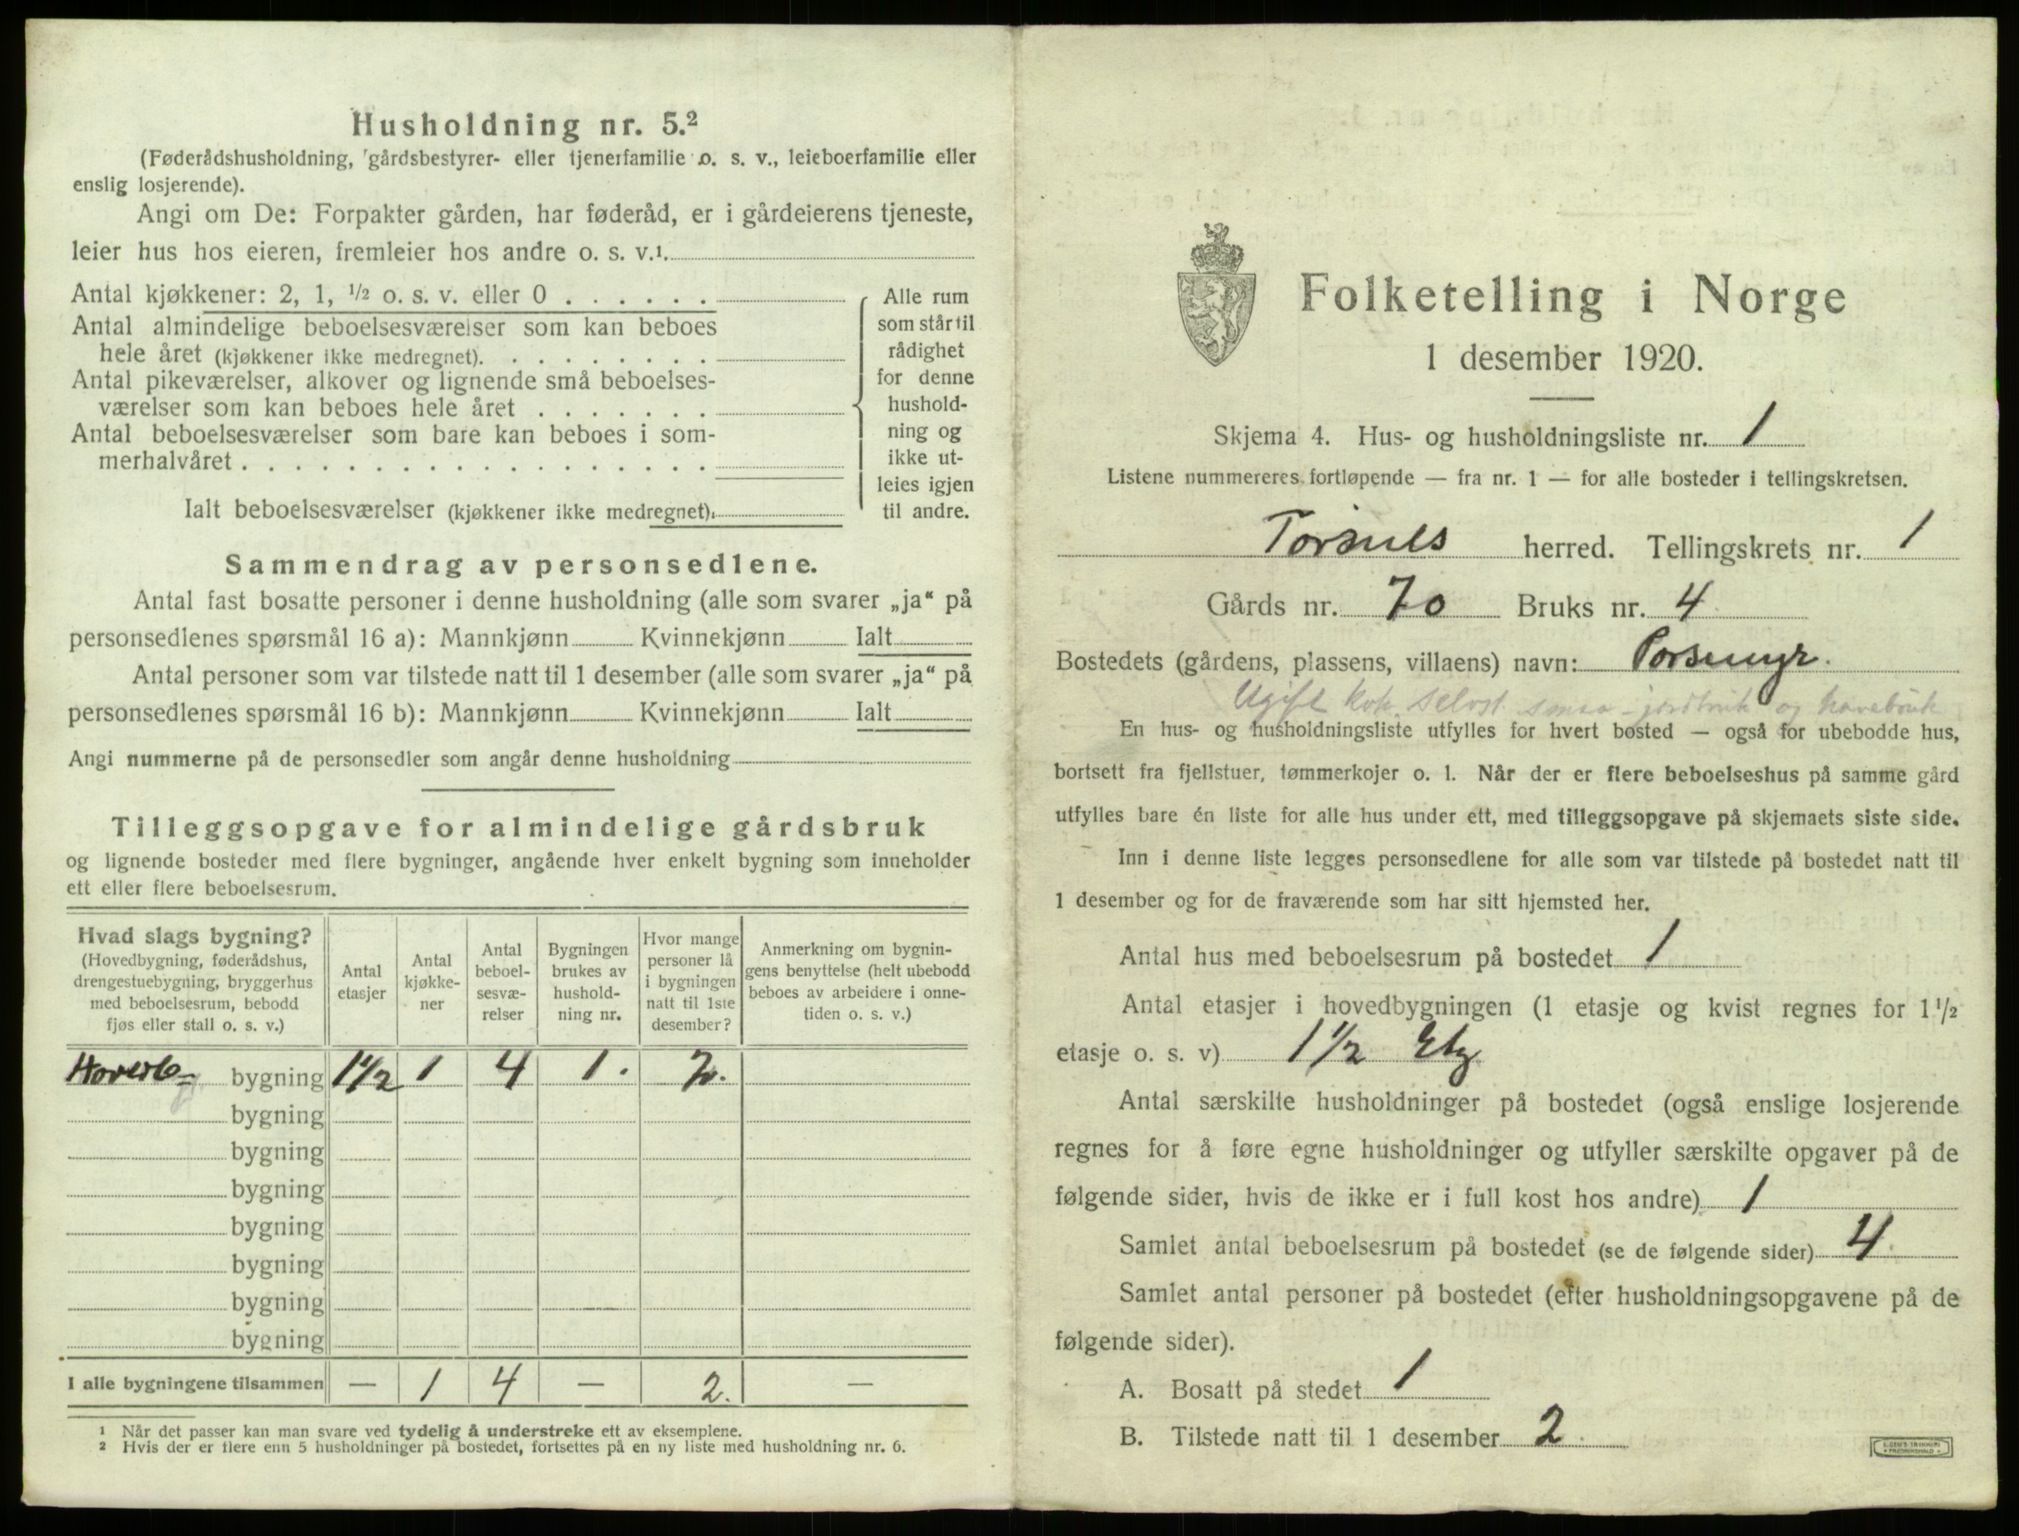 Husholdning nr. 5.²
(Føderådshusholdning, gårdsbestyrer- eller tjenerfamilie o. s. v., leieboerfamilie eller
enslig losjerende).
Angi om De: Forpakter gården, har føderåd, er i gårdeierens tjeneste,
leier hus hos eieren, fremleier hos andre o. s. v.¹
Antal kjøkkener: 2, 1, ½ o. s. v. eller 0 . . . . . .
Antal almindelige beboelsesværelser som kan beboes
hele året (kjøkkener ikke medregnet). . . . . . . . .
Antal pikeværelser, alkover og lignende små beboelses-
værelser som kan beboes hele året . . . . . . .
Antal beboelsesværelser som bare kan beboes i som-
merhalvåret . . . . . . . . . . . . . . . . . .
Ialt beboelsesværelser (kjøkkener ikke medregnet).
Alle rum
som står til
rådighet
for denne
hushold-
ning og
ikke ut-
leies igjen
til andre.
Sammendrag av personsedlene.
Antal fast bosatte personer i denne husholdning (alle som svarer „ja“ på
personsedlenes spørsmål 16 a): Mannkjønn Kvinnekjønn Ialt
Antal personer som var tilstede natt til 1 desember (alle som svarer „ja“ på
personsedlenes spørsmål 16 b): Mannkjønn Kvinnekjønn Ialt
Angi nummerne på de personsedler som angår denne husholdning
Tilleggsopgave for almindelige gårdsbruk
og lignende bosteder med flere bygninger, angående hver enkelt bygning som inneholder
ett eller flere beboelsesrum.
Hvad slags bygning?
(Hovedbygning, føderådshus,
drengestuebygning, bryggerhus
med beboelsesrum, bebodd
fjøs eller stall o. s. v.)
Antal
etasjer
Antal
kjøkke-
ner
Antal
beboel-
sesvæ-
relser
Bygningen
brukes av
hushold-
ning nr.
Hvor mange
personer lå
i bygningen
natt til 1ste
desember?
Anmerkning om bygnin-
gens benyttelse (helt ubebodd
beboes av arbeidere i onne-
tiden o. s. v.)
bygning 1½ 1 4 1. 2.
bygning
bygning
bygning
bygning
bygning
bygning
bygning
I alle bygningene tilsammen — 1 4 — 2. —
¹ Når det passer kan man svare ved tydelig å understreke ett av eksemplene.
² Hvis der er flere enn 5 husholdninger på bostedet, fortsettes på en ny liste med husholdning nr. 6.
Folketelling i Norge
1 desember 1920.
Skjema 4. Hus- og husholdningsliste nr. 1
Listene nummereres fortløpende — fra nr. 1 — for alle bosteder i tellingskretsen.
Torsnes herred. Tellingskrets nr. 1
Gårds nr. 70 Bruks nr. 4
Bostedets (gårdens, plassens, villaens) navn: Porsmyr.
Ugift selvst. smaa-jordbruk og havebruk
En hus- og husholdningsliste utfylles for hvert bosted — også for ubebodde hus,
bortsett fra fjellstuer, tømmerkojer o. l. Når der er flere beboelseshus på samme gård
utfylles bare én liste for alle hus under ett, med tilleggsopgave på skjemaets siste side.
Inn i denne liste legges personsedlene for alle som var tilstede på bostedet natt til
1 desember og for de fraværende som har sitt hjemsted her.
Antal hus med beboelsesrum på bostedet 1
Antal etasjer i hovedbygningen (1 etasje og kvist regnes for 1½
etasje o. s. v) 1½ Etg
Antal særskilte husholdninger på bostedet (også enslige losjerende
regnes for å føre egne husholdninger og utfyller særskilte opgaver på de
følgende sider, hvis de ikke er i full kost hos andre) 1
Samlet antal beboelsesrum på bostedet (se de følgende sider) 4
Samlet antal personer på bostedet (efter husholdningsopgavene på de
følgende sider).
A. Bosatt på stedet 1
B. Tilstede natt til 1 desember 2